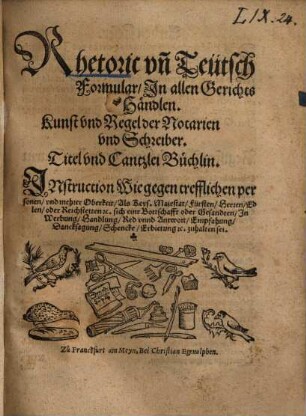 LIX.24.
Rhetoric vñ Teütsch
Formular/ In allen Gerichts
Händlen.
Kunst vnd Regel der Notarien
vnd Schreiber.
Titel vnd Cantzlei Büchlin.
INstruction Wie gegen trefflichen per
sonen/ vnd mehrer Oberkeit/ Als Keys. Maiestat/ Fürsten/ Herren/ Ed
len/ oder Reichstetten ꝛc. sich eine Bottschafft oder Gesandten/ In
Werbung/ Handlung/ Red vnnd Antwort/ Empfahung/
Dancksagung/ Schencke/ Erbietung ꝛc. zuhalten sei.
Zů Franckfurt am Meyn, Bei Christian Egenolphen.